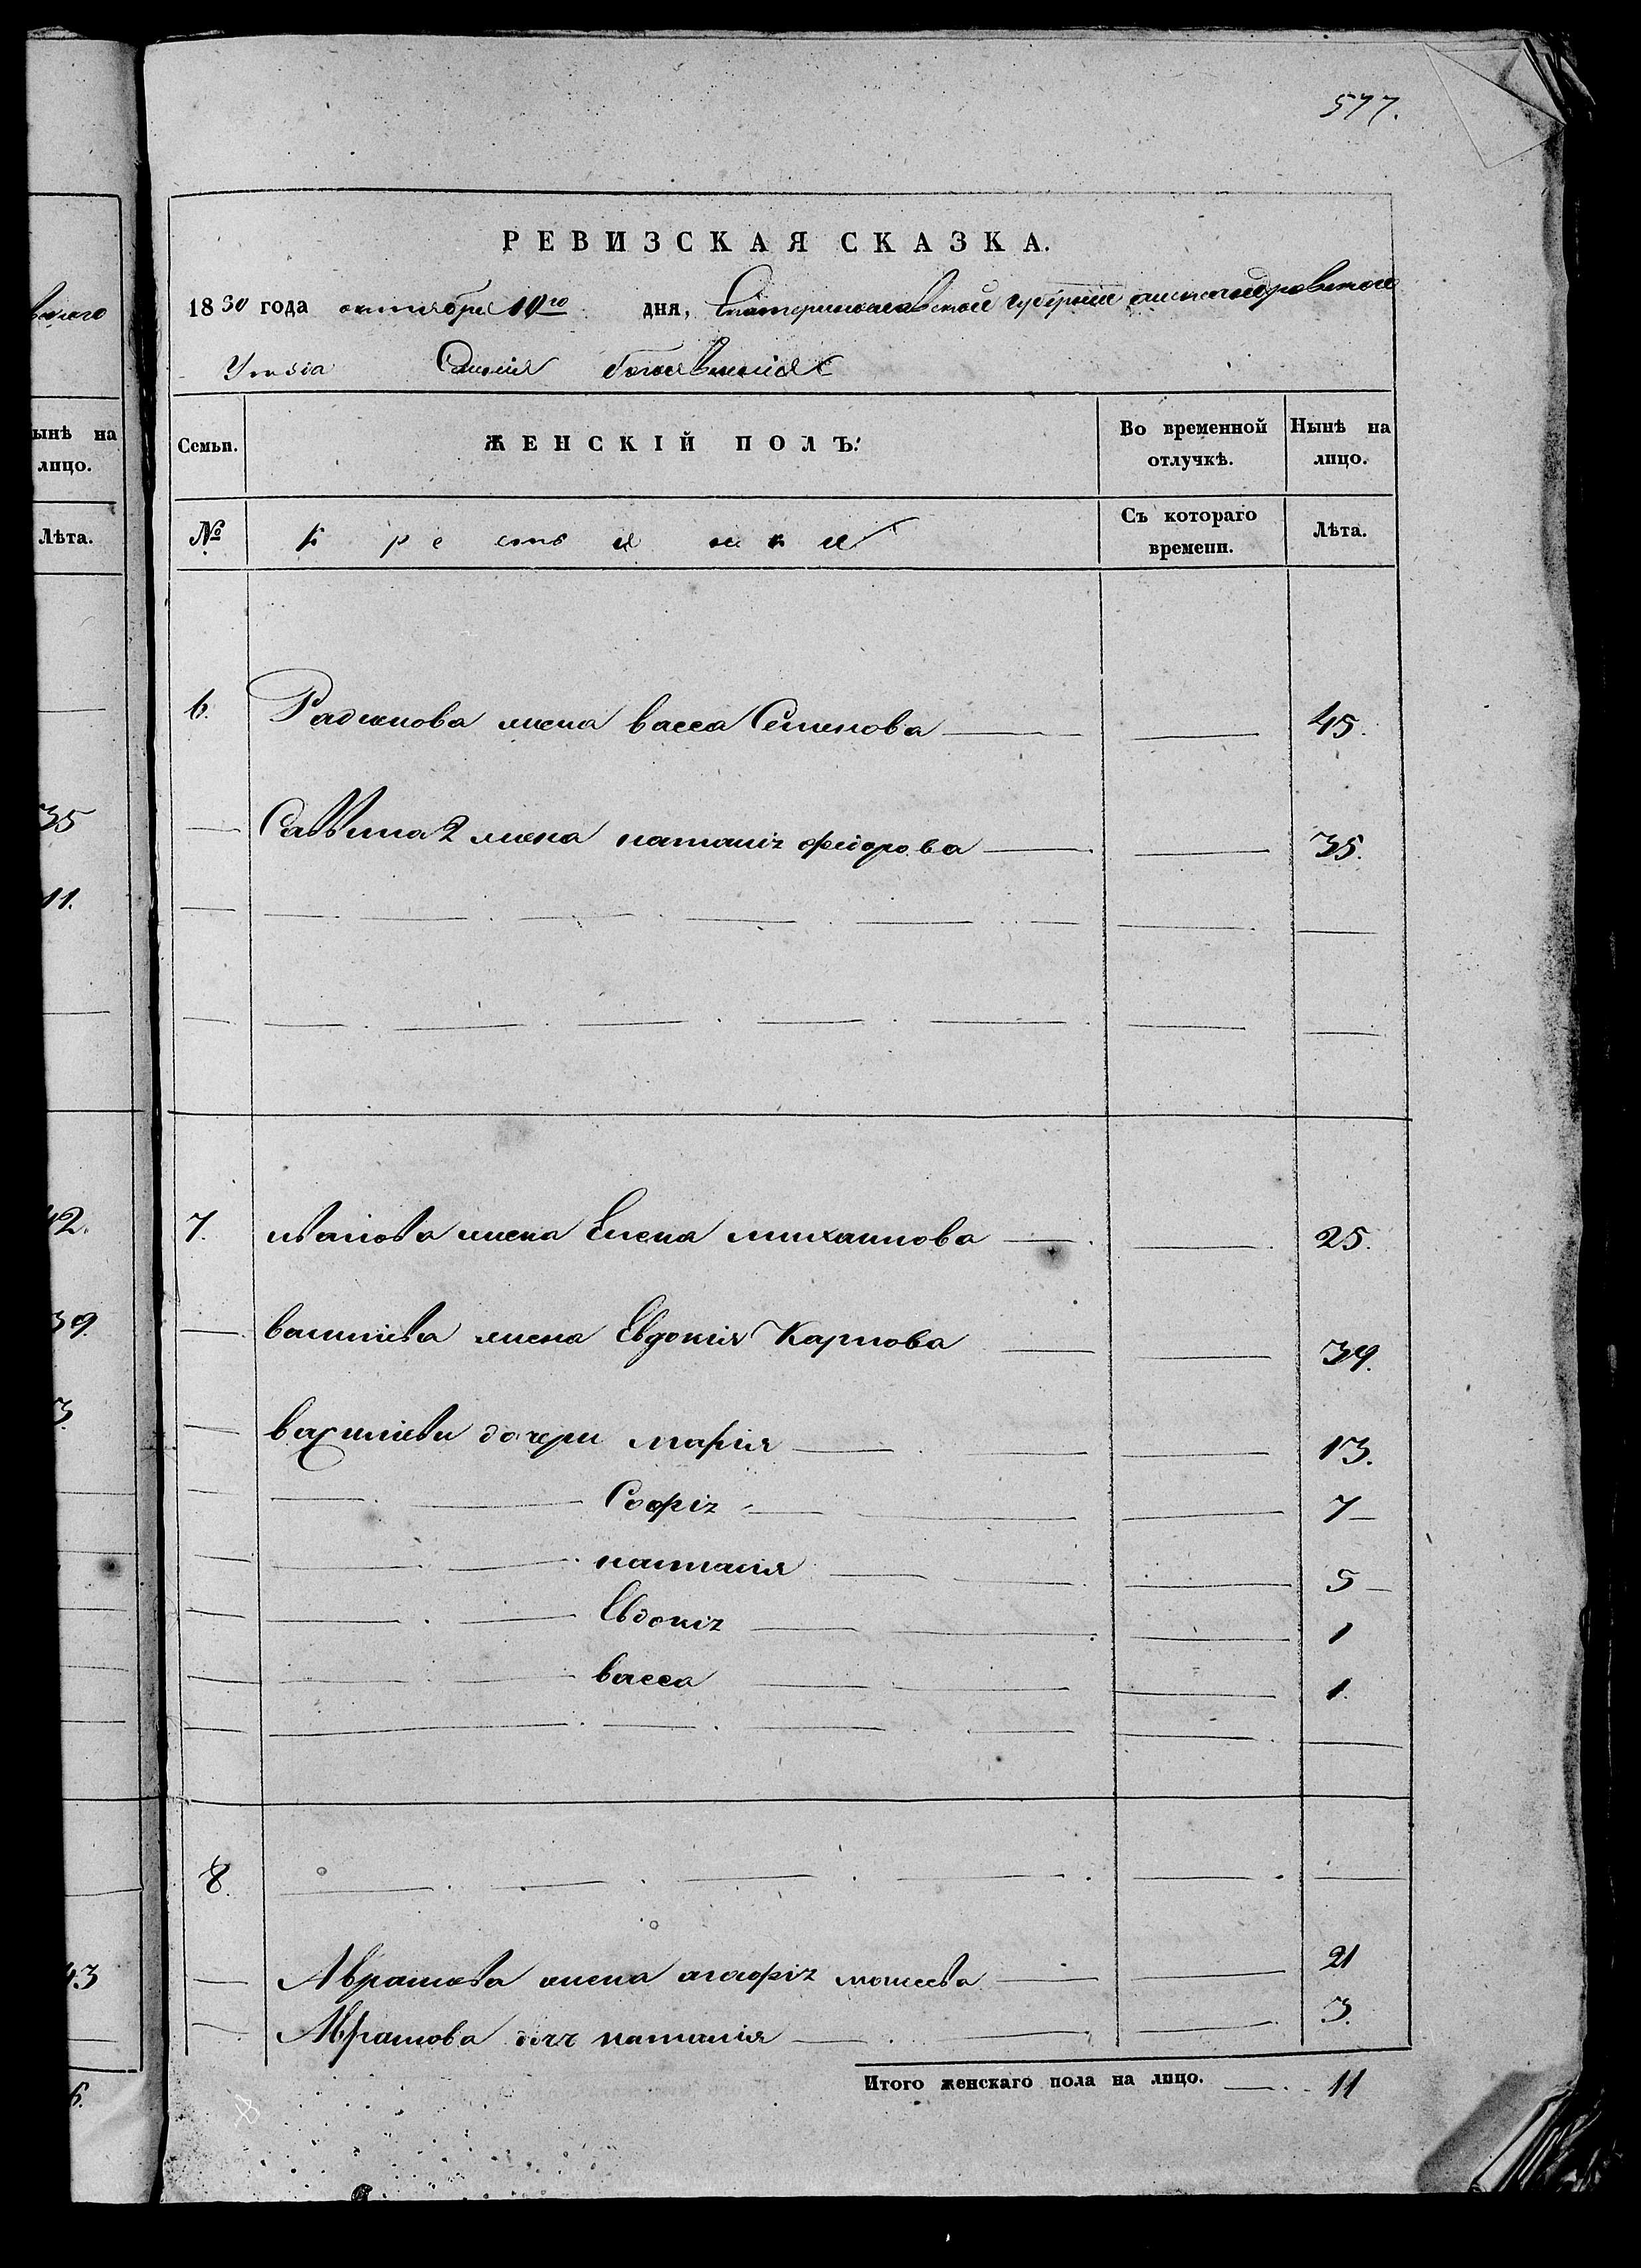 577.
РЕВИЗСКАЯ СКАЗКА.
1850 года октября 10го дня, Екатеринославской губерніи александровского
Уезда Селенія
Семьи.
ЖЕНСКІЙ ПОЛЪ:
Во временной отлучкѣ.
Нынѣ на лицо.
№
крестьянки
Съ котораго времени.
Лѣта.
6. Радионова жена васса Семенова 45.
Саввина 2 жена наталия фиодрова 35.
7. иванова жена Елена михаилова 25.
василиева жена Евдокия Карпова 39.
василиеви дочери мария 13.
Софія 7
наталия 5
Евдокия 1
васса 1.
8.
Аврамова жена агафія моисеева 21
Аврамова дочь наталия 3.
Итого женскаго пола на лицо. 11
вского
ынѣ на
лицо.
Лѣта.
35
11.
42.
39.
3.
43
6.